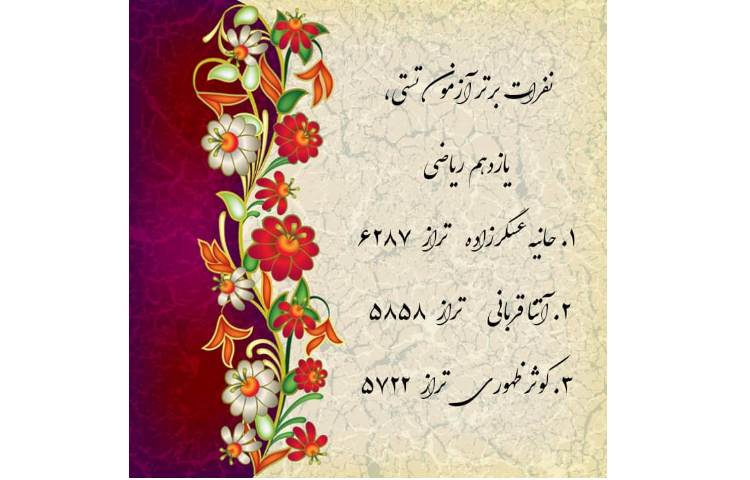 نفرات برتر آزمون تستی،
یازدهم ریاضی
۱. حانیه عسکرزاده تراز ۶۲۸۷
۲. آتنا قربانی تراز ۵۸۵۸
۳. کوثر ظهوری تراز ۵۷۲۲